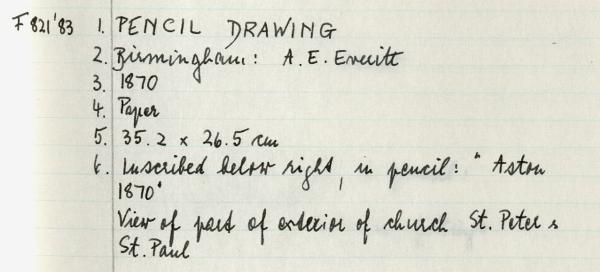 F 821'83 1. PENCIL DRAWING
2. Birmingham: A. E. Everitt
3. 1870
4. Paper
5. 35.2 x 26.5 cm
6. Inscribed below right, in pencil: "Aston
1870"
View of part of exterior of church St. Peter &
St. Paul